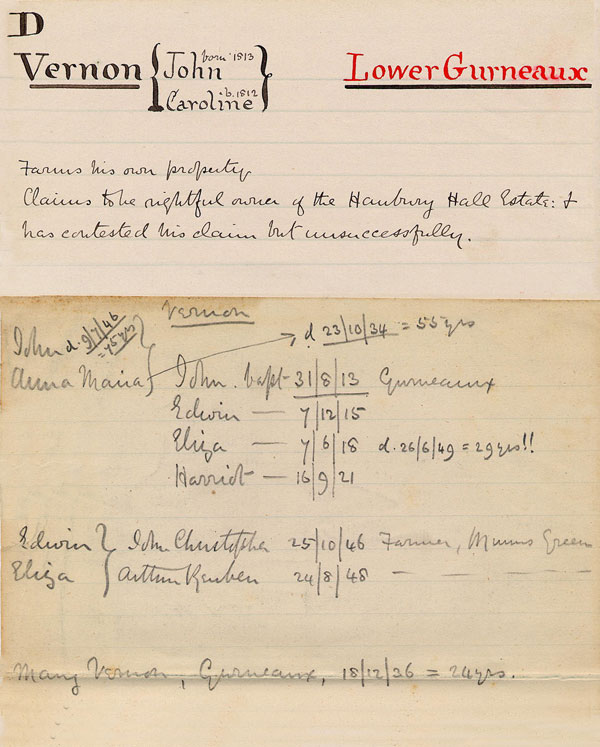 D
Vernon { John born 1813 Caroline b. 1812 } Lower Gurneaux
Farms his own property.
Claims to be rightful owner of the Hanbury Hall Estate: &
has contested his claim but unsuccessfully.
Vernon
John d. 9/7/46 = 75 yrs
Anna Maria d. 23/10/34 = 55 yrs
John. bapt 31/8/13 Gurneaux
Edwin — 7/12/15
Eliza — 7/6/18 d. 26/6/49 = 29 yrs!!
Harriot — 16/9/21
Edwin } John Christopher 25/10/46 Farmer, Mumms Green
Eliza } Arthur Reuben 24/8/48 — — —
Mary Vernon, Gurneaux, 18/12/36 = 24 yrs.